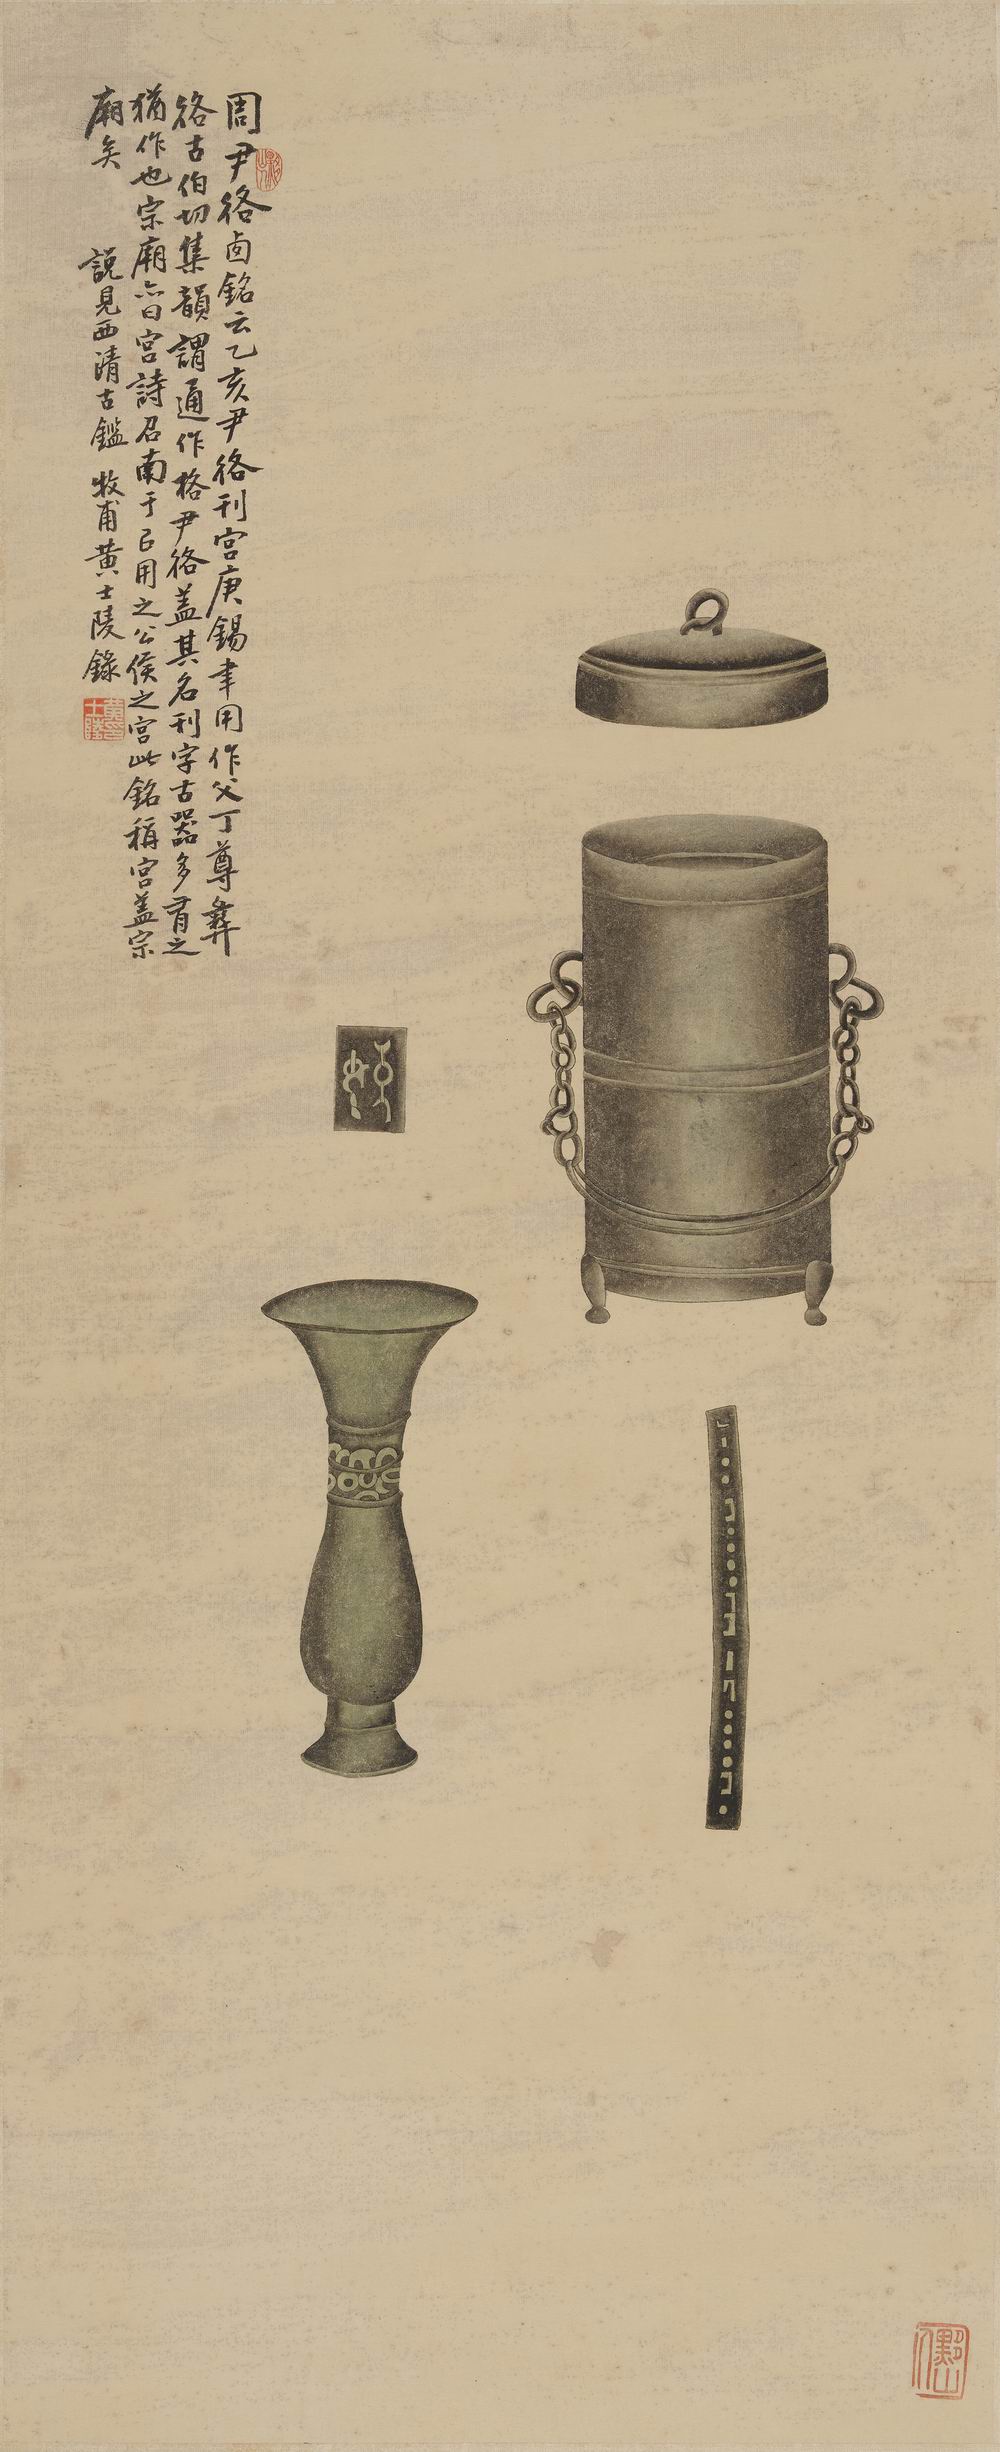 周尹㣟卣銘云乙亥尹㣟刊宮庚錫聿用作父丁尊彝
㣟古伯切集韻謂通作格尹㣟蓋其名刊字古器多有之
猶作也宗廟亦曰宮詩召南于以用之公侯之宮此銘稱宮蓋宗
廟矣
說見西清古鑑 牧甫黃士陵錄
黟山人